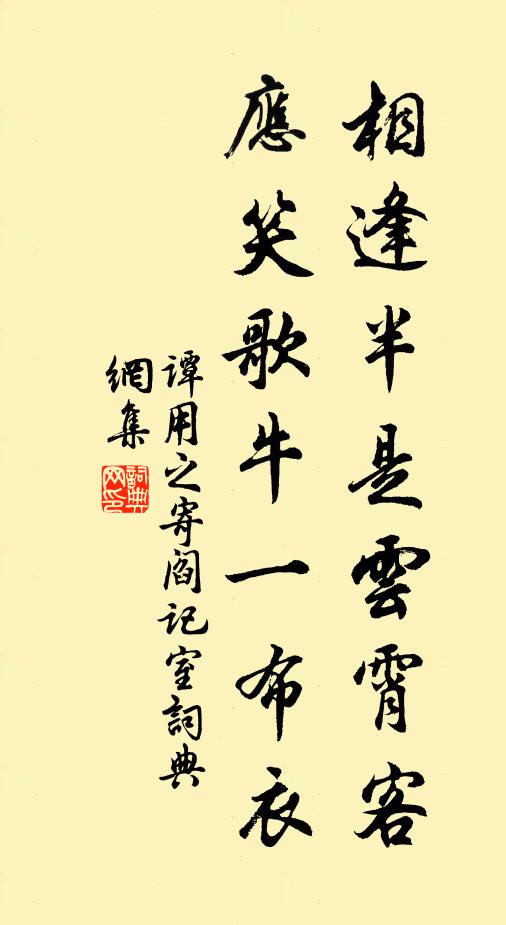 相逢半是雲霄客
應笑歌牛一布衣
譚用之寄閻記室詞典
網集
詞典網印